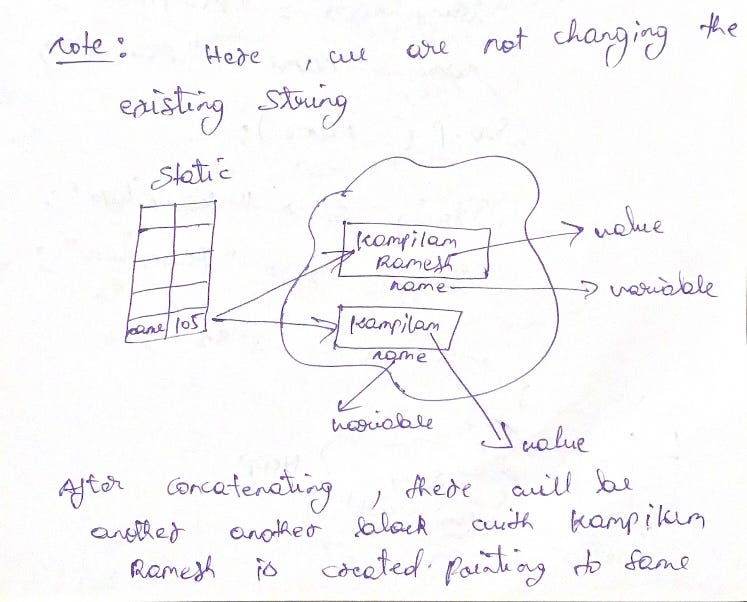 Note: Here, we are not changing the
existing String
Static
Kampilan
Ramesh
value
name
variable
name 105
Kampilan
name
variable
value
After concatenating, there will be
another another block with Kampilan
Ramesh is created. Pointing to same